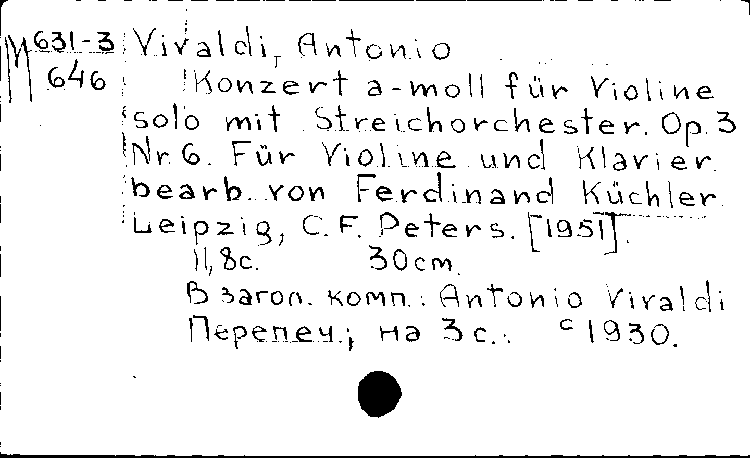 М 631-3 Vivaldi, Antonio
646 Konzert a-moll für Violine
solo mit Streichorchester. Op. 3
Nr. 6. Für Violine und Klavier
bearb. von Ferdinand Küchler.
Leipzig, C. F. Peters. [1951].
11, 8 c. 30 cm.
В загол. комп.: Antonio Vivaldi
Перепеч.; на 3 с.: c 1930.